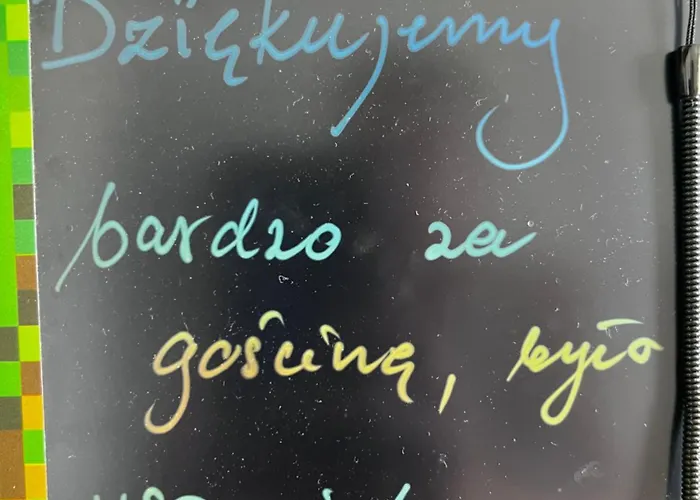 Dziękujemy
bardzo za
gościnę, było